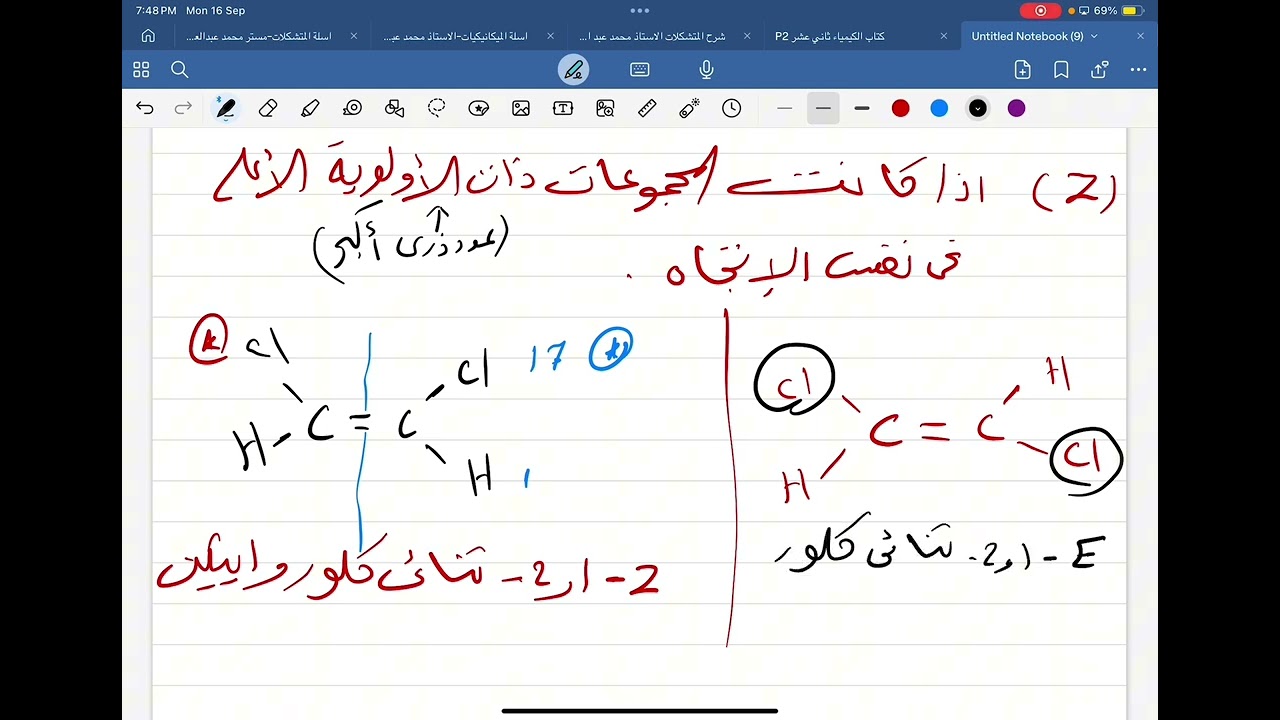 7:48 PM Mon 16 Sep
69%
اسلة المتشكلات-مستر محمد عبدالعـ...
اسلة الميكانيكيات-الاستاذ محمد عبـ...
شرح المتشكلات الاستاذ محمد عبد ا...
كتاب الكيمياء ثاني عشر P2
Untitled Notebook (9)
(Z) اذا كانت المجموعات ذات الأولوية الأعلى
(عدد ذرى أكبر)
فى نفس الإتجاه .
Cl Cl 17
C = C
H H 1
Z - 1و2 - ثنائى كلورو ايثين
Cl H
C = C
H Cl
E - 1و2 - ثنائى كلور